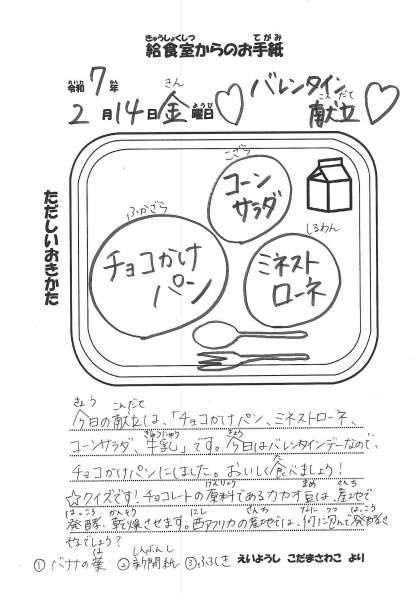 給食室からのお手紙
きゅうしょくしつ てがみ
令和7年
れいわ ねん
2月14日金曜日
きん ようび
♡バレンタイン献立♡
こんだて
ただしいおきかた
こざら
コーンサラダ
ふかざら
チョコかけパン
しるわん
ミネストローネ
きょう こんだて
今日の献立は、「チョコかけパン、ミネストローネ、
ぎゅうにゅう きょう
コーンサラダ、牛乳」です。今日はバレンタインデーなので、
チョコかけパンにしました。おいしく食べましょう!
げんりょう まめ さんち
☆クイズです!チョコレートの原料であるカカオ豆は、産地で
はっこう かんそう にし さんち なに つつ はっこう
発酵、乾燥させます。西アフリカの産地では、何に包んで発酵さ
せるでしょう?
は しんぶんし
①バナナの葉 ②新聞紙 ③ふろしき
えいようし こだまさわこ より